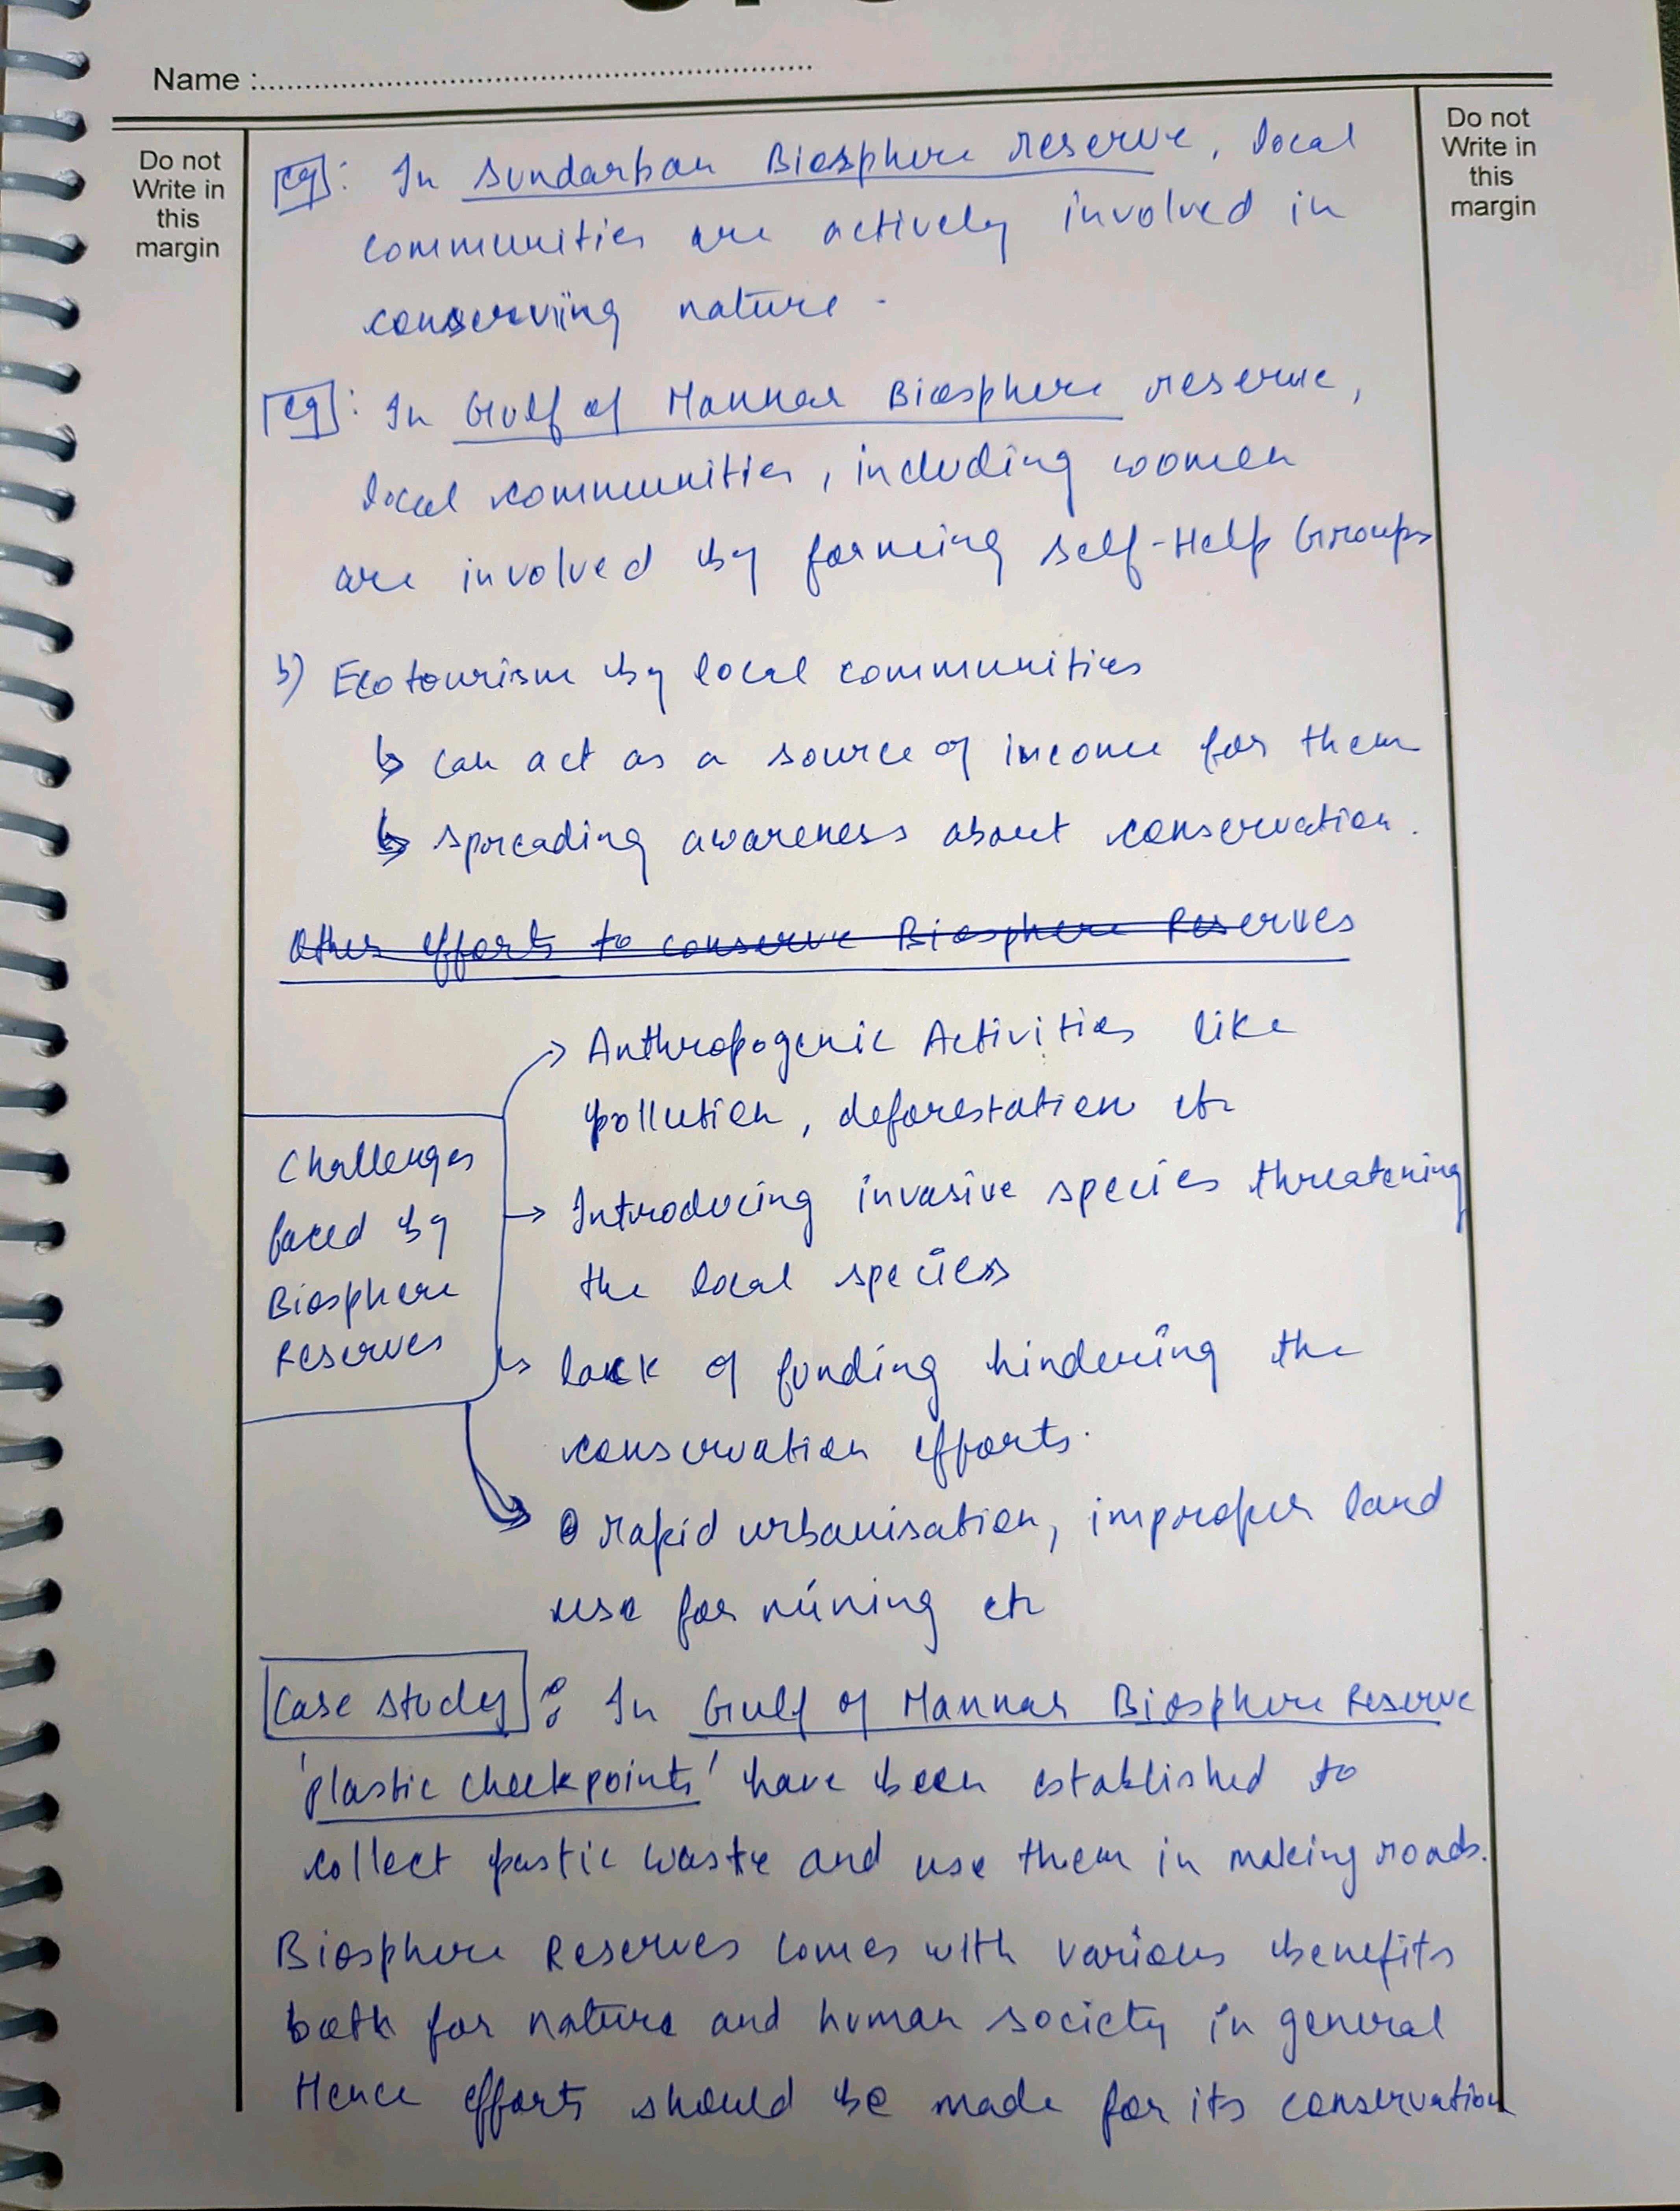 Name :
Do not
Write in
this
margin
Do not
Write in
this
margin
eg: In Sundarban Biosphere reserve, local
communities are actively involved in
conserving nature.
eg: In Gulf of Mannar Biosphere reserve,
local communities, including women
are involved by forming self-Help Groups
b) Ecotourism by local communities
↳ can act as a source of income for them
↳ spreading awareness about conservation.
Other efforts to conserve Biosphere Reserves
Challenges
faced by
Biosphere
Reserves
→ Anthropogenic Activities like
pollution, deforestation etc
→ Introducing invasive species threatening
the local species
↳ lack of funding hindering the
conservation efforts.
→ rapid urbanisation, improper land
use for mining etc
Case study : In Gulf of Mannar Biosphere Reserve
'plastic checkpoints' have been established to
collect pastic waste and use them in making roads.
Biosphere Reserves comes with various benefits
both for nature and human society in general
Hence efforts should be made for its conservation